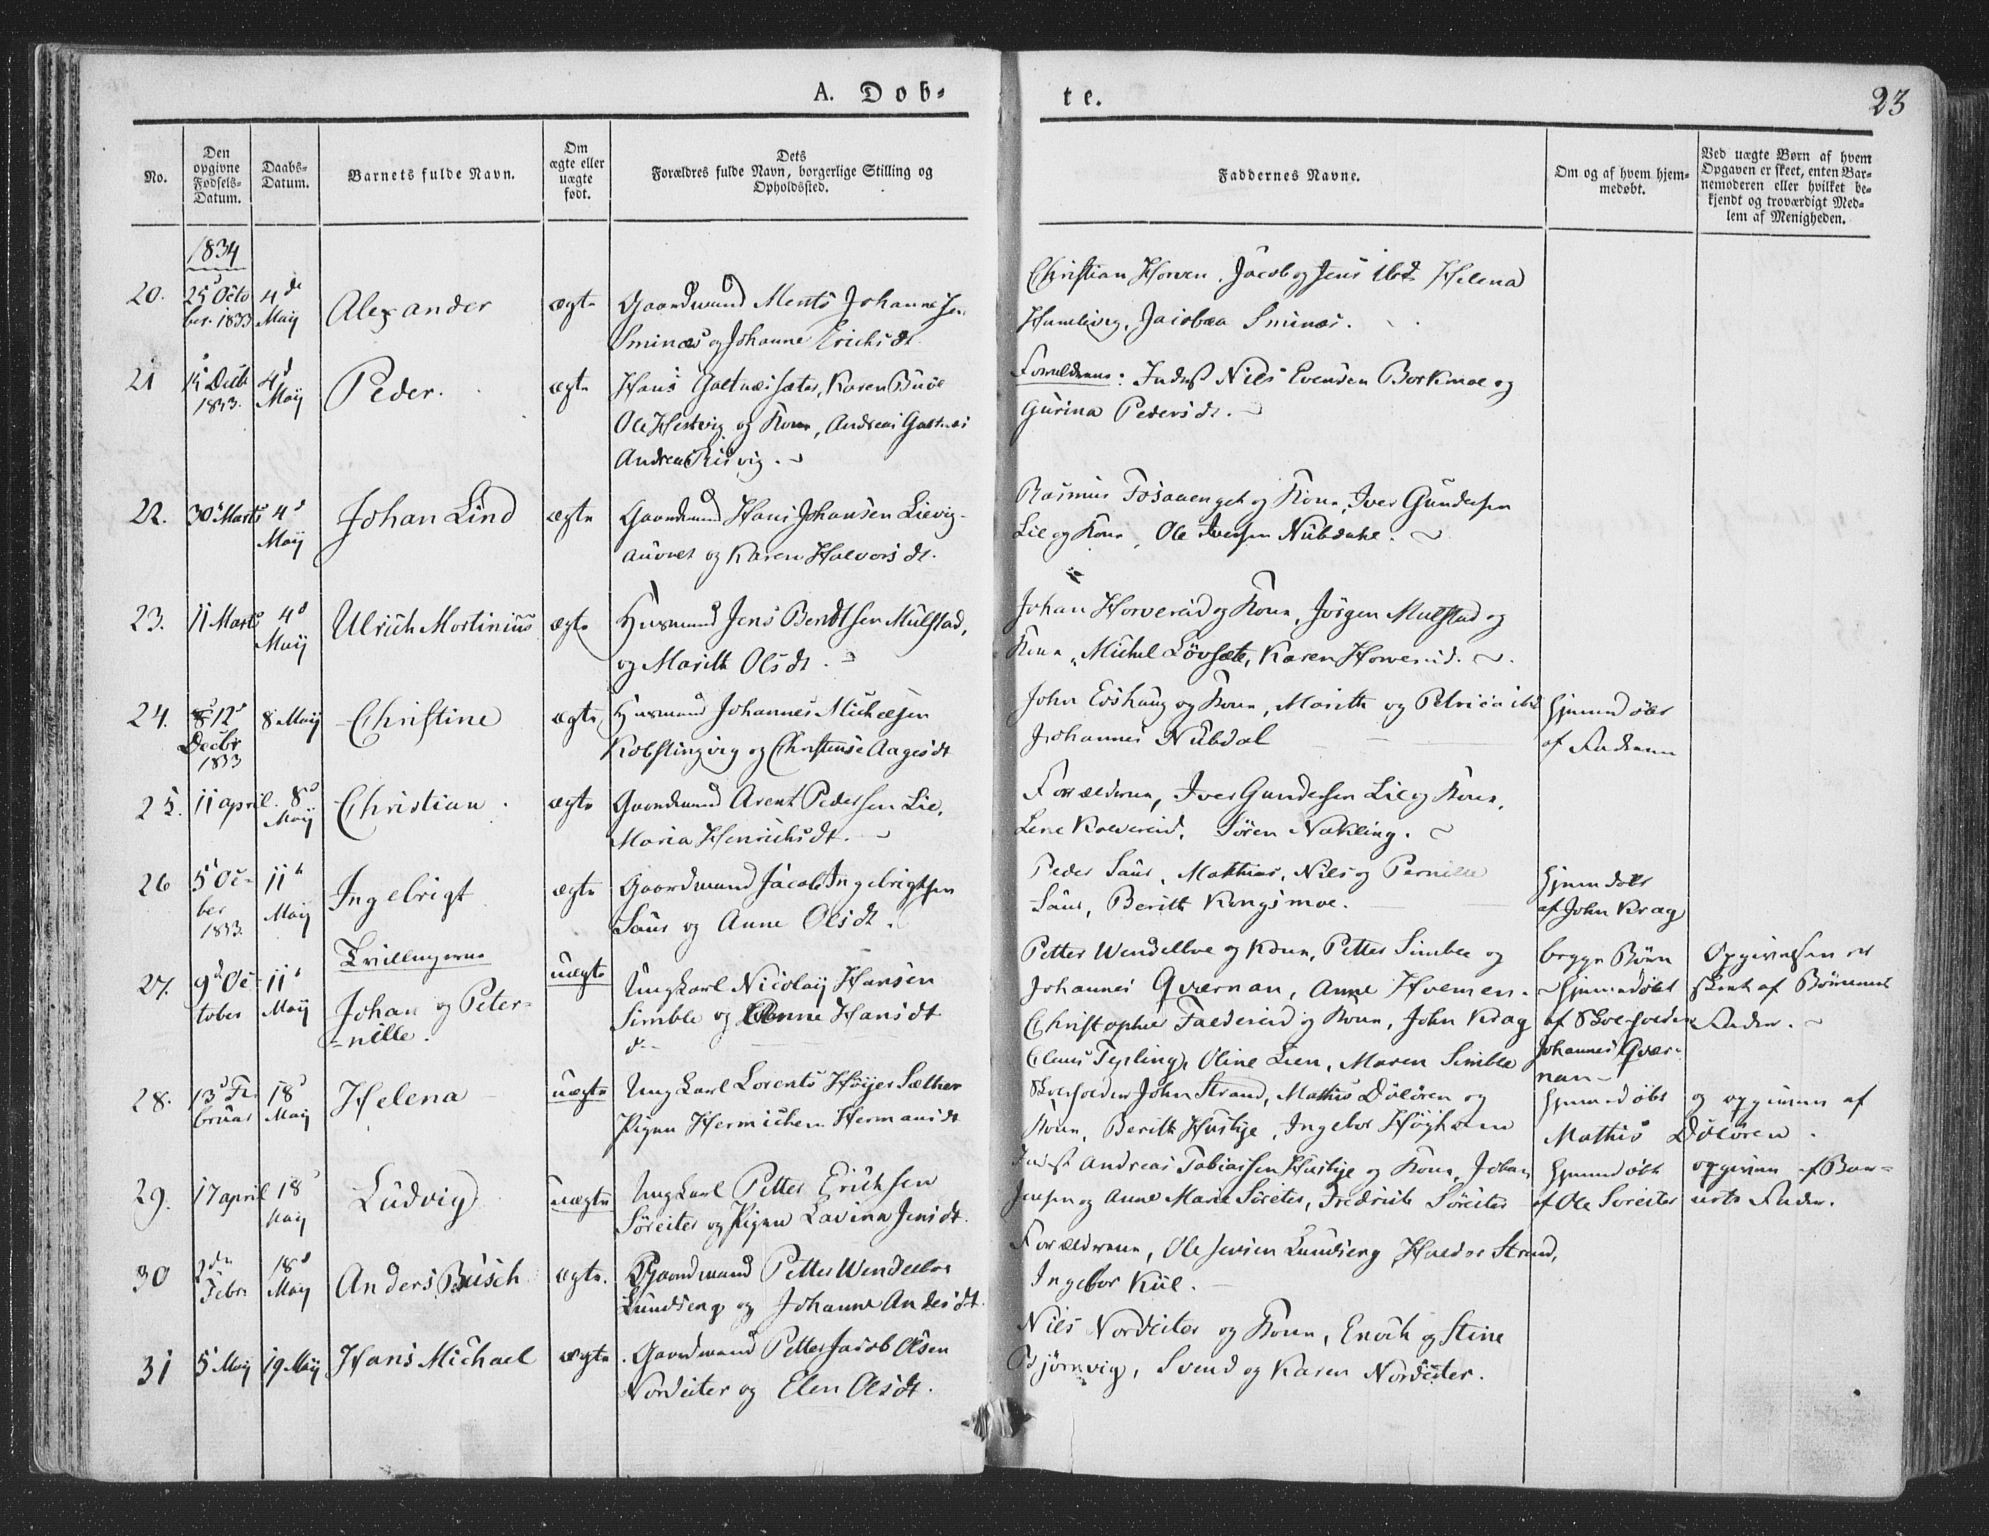 A. Døb-
te.
23
No.
Den opgivne Fødsels-Datum.
Daabs-Datum.
Barnets fulde Navn.
Om ægte eller uægte født.
Dets Forældres fulde Navn, borgerlige Stilling og Opholdssted.
Faddernes Navne.
Om og af hvem hjem-medøbt.
Ved uægte Børn af hvem Opgaven er skeet, enten Bar-nemoderen eller hvilket be-kjendt og troværdigt Med-lem af Menigheden.
1834
20. 25 Octo ber. 1833 4de Maij Alexander ægte Gaardmand Ments Johannesen
Sminæs og Johanne Erichsdt
Christian Horven, Jacob og Jens ibd Helena
Jacobæa Sminæs.
21 15 Decbr 1833. 4d Maij Peder. ægte Hans Galtnæs sæter, Karen Buøe
Ole Hestvig og Kone, Andreas Galtnæs
Andrea Risvig.
Forældrene: Inderst Nils Evensen Borkmoe og
Gurina Pedersdt.
22. 30 Marts 4d Maij Johan Lind ægte Gaardmand Hans Johansen Lievig-
auvnet og Karen Halvorsdt.
Rasmus Fosaaenget og Kone, Iver Gundersen
Lie og Kone, Ole Iversen Nubdahl.
23. 11 Marts 4d Maij Ulrich Mortinius ægte Husmand Jens Berndtsen Mulstad,
og Marith Olsdt.
Johan Horvereid og Kone, Jørgen Mulstad og
Kone, Michel Løvsæte, Karen Horvereid.
24. 12d Decbr 1833 8 Maij Christine ægte Husmand Johannes Michelsen
Kobstingvig og Christense Aagesdt
John Eoshaug og Kone, Marith og Petrica ibd
Johannes Nubdal
hjemmedøbt
af Faderen
25. 11 april. 8d Maij Christian. ægte Gaardmand Arent Pedersen Lie,
Maria Henrichsdt.
Forældrene, Iver Gundersen Lie og Kone,
Lene Kolvereid, Søren Nakling.
26 5 Oc- ber 1833. 11 Maij Ingebrigt ægte Gaardmand Jacob Ingebrigtsen
Saur og Anne Olsdt.
Peder Saur, Mathias, Nils og Pernille
Saur, Berith Kongsmoe.
hjemmedøbt
af John Krag
27. 9d Oc- tober 11 Maij Tvillingerne
Johan og Peter-
nille. uægte Ungkarl Nicolaij Hansen
Simble og Anne Hansdt
Petter Wendelboe og Kone, Petter Simble og
Johannes Qværnan, Anne Hvemen.
Christopher Faldereid og Kone, John Krag
Claus Terling, Oline Lien, Maren Simble
begge Børn
hjemmedøbt
af Skoleholder
Johannes Qvær-
nan
Opgivelsen er
skeet af Børnenes
Fader.
28. 13d Fe- bruar 18d Maij Helena uægte Ungkarl Lorents Høyer Sæther
Pigen Hermichen Hermansdt
Skoleholder John Strand, Mathis Døløren og
Kone, Berith Hustye, Ingebor Høyholm
hjemmedøbt og opgiven af
Mathis Døløren.
29. 17 april 18d Maij Ludvig uægte Ungkarl Petter Erichsen
Søreiter og Pigen Lavina Jensdt.
Inderst Andreas Tobiassen Hustye og Kone, Johan
Jensen og Anne Marie Søreiter, Fredrik Søreiter
hjemmedøbt
af Ole Soreiter
opgiven af Bar-
nets Fader.
30 Febr. 18d Maij Anders Busch ægte. Gaardmand Petter Wendelboe
Lundseng og Johanna Andersdt.
Forældrene, Ole Jensen Lundseng Haldor Strand,
Ingebor Kiil.
31 5 Maij 19 Maij Hans Michael ægte Gaardmand Petter Jacob Olsen
Nordeiter og Elen Olsdt.
Nils Nordeiter og Kone, Enoch og Stine
Bjørnvig, Svend og Karen Nordeiter.